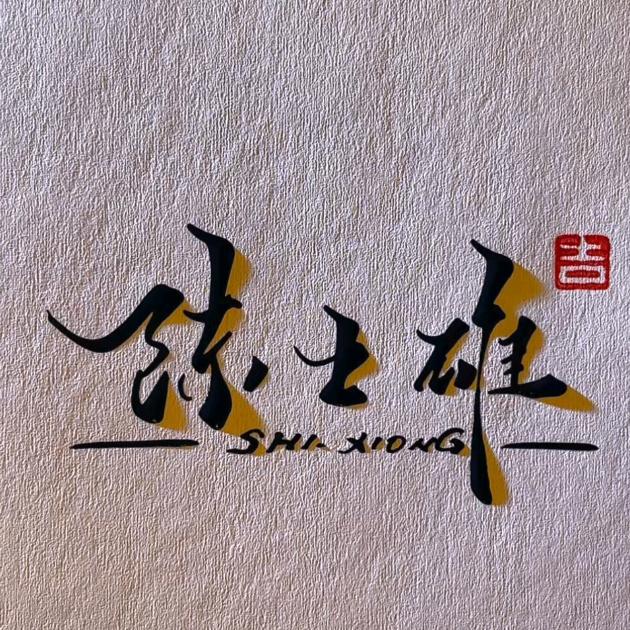 陈士雄
SHI XIONG